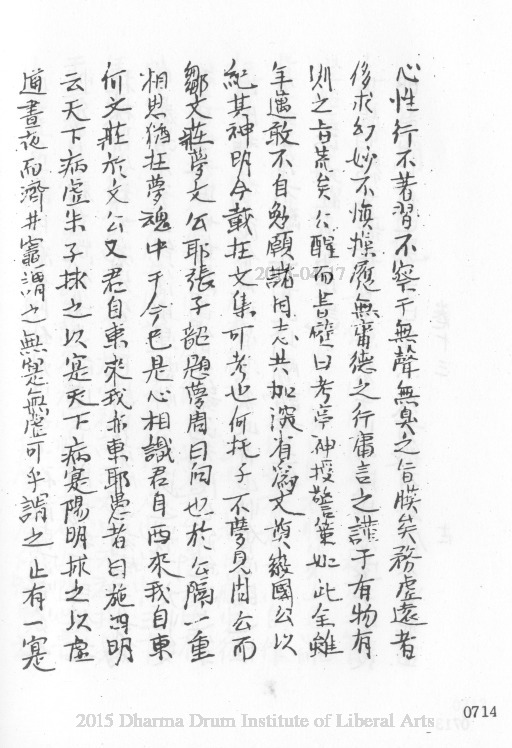 心性行不著習不察于無聲無臭之旨膜矣務虛遠者
侈求幻妙不慎操履無當德之行庸言之謹于有物有
則之旨荒矣公醒而告醳曰考亭神授警策如此余雖
年邁敢不自勉願諸同志共加深省為文奠徽國公以
紀其神明今載在文集可考也何托子不夢見周公而
鄒文莊夢文公耶張子韶題夢周曰向也於公隔一重
相思猶在夢魂中于今已是心相識君自西來我自東
何文莊於文公又君自東來我亦東耶愚者曰施四明
云天下病虛朱子捄之以寔天下病寔陽明捄之以虛
道晝夜而濟井竈謂之無寔無虛可乎謂之止有一寔
2015 Dharma Drum Institute of Liberal Arts
0714